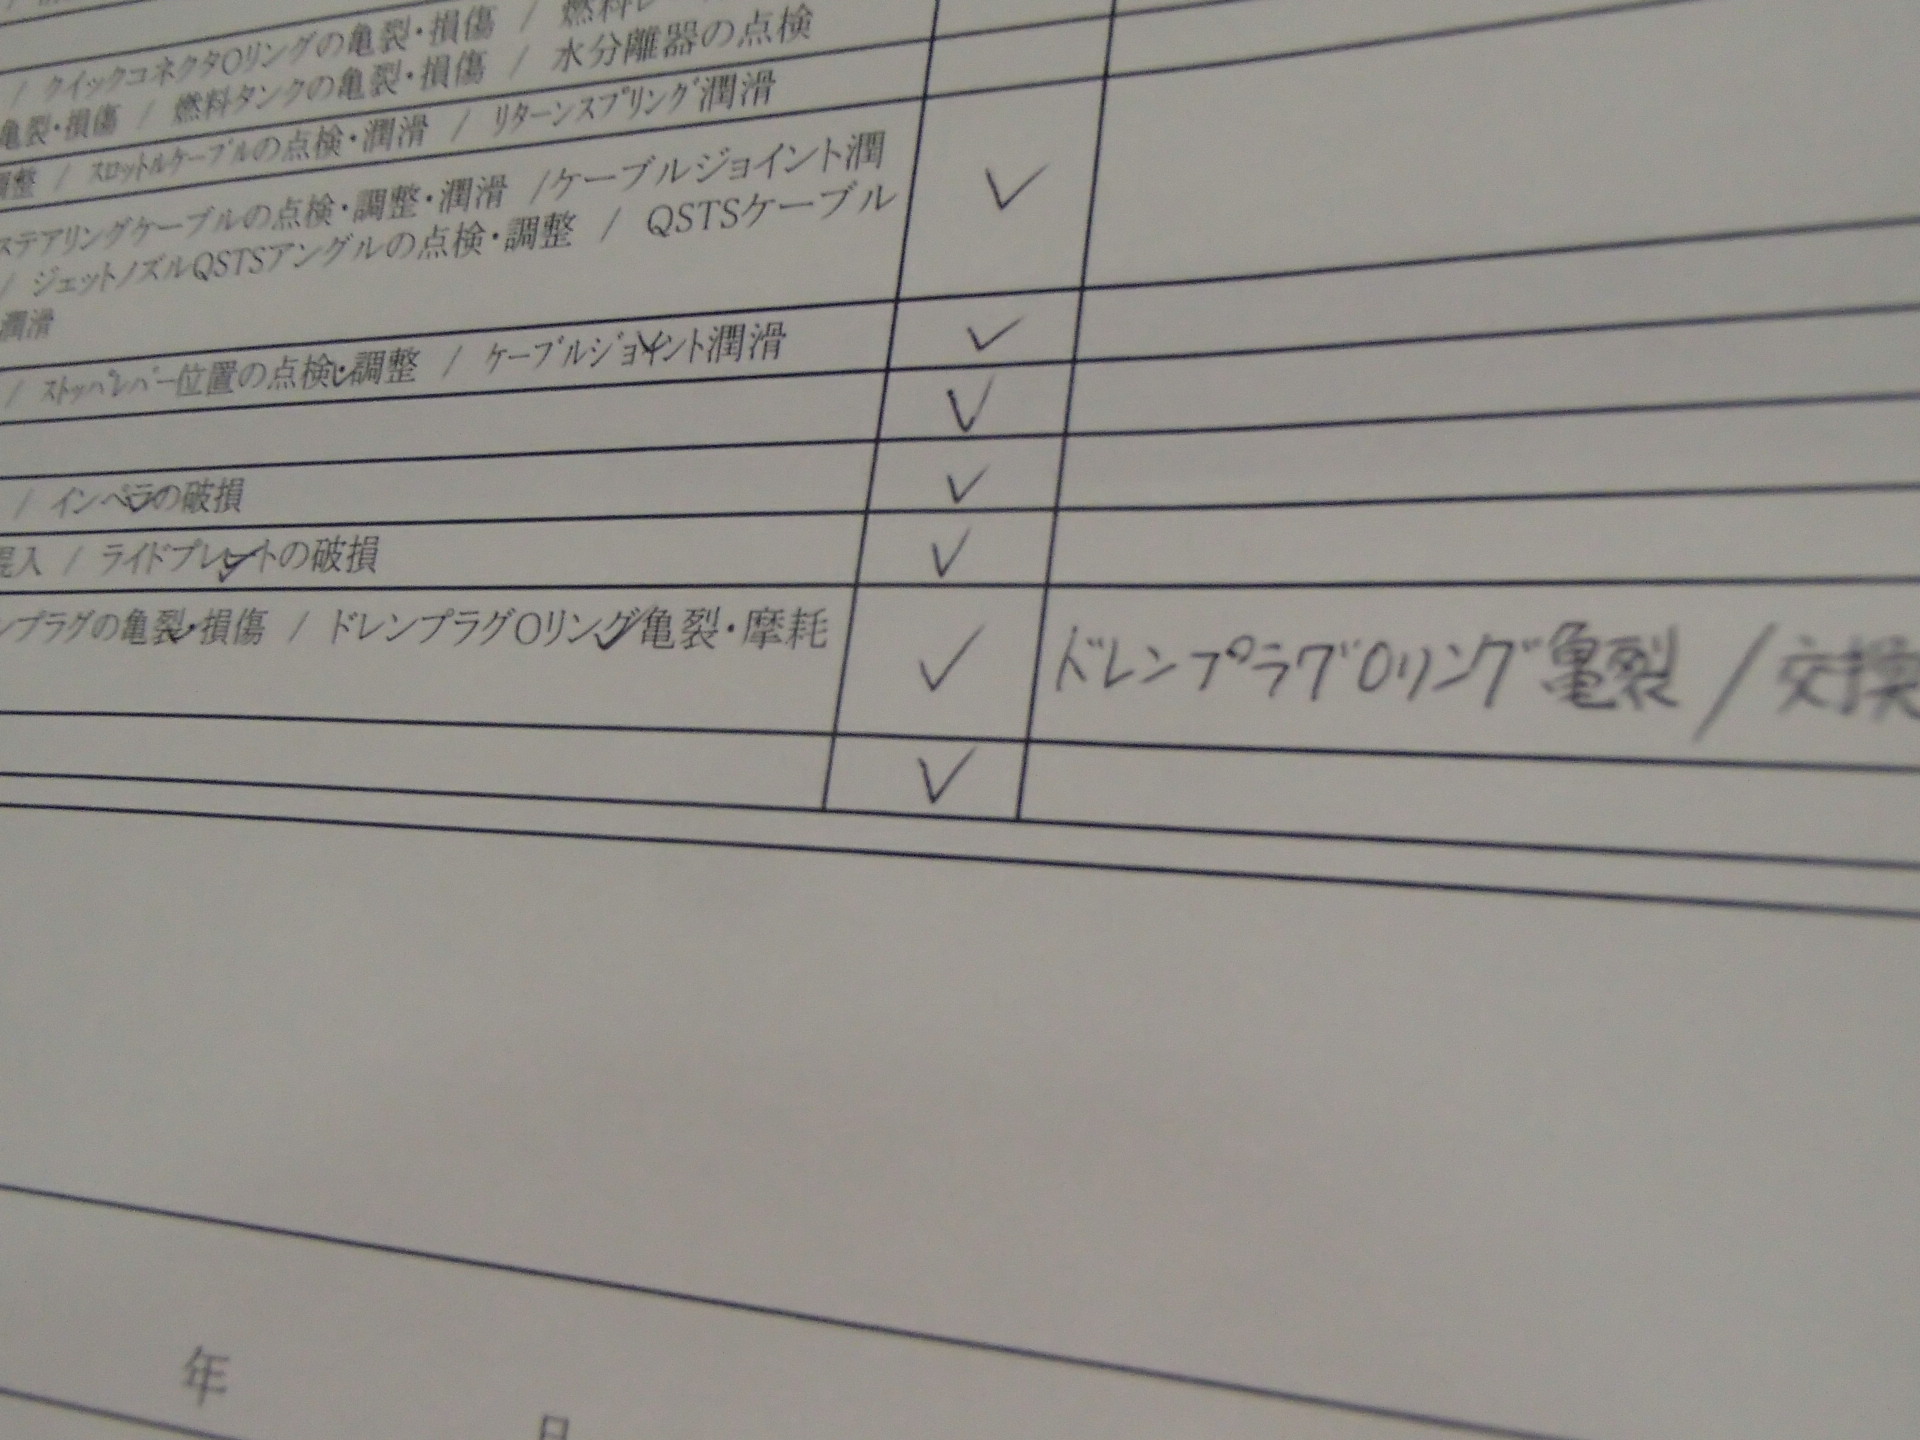 / クイックコネクタOリングの亀裂・損傷 /
亀裂・損傷 / 燃料タンクの亀裂・損傷 / 水分離器の点検
調整 / スロットルケーブルの点検・潤滑 / リターンスプリング潤滑
ステアリングケーブルの点検・調整・潤滑 /ケーブルジョイント潤
/ ジェットノズルQSTSアングルの点検・調整 / QSTSケーブル
潤滑
/ ストッパレバー位置の点検・調整 / ケーブルジョイント潤滑
/ インペラの破損
混入 / ライドプレートの破損
ンプラグの亀裂・損傷 / ドレンプラグOリング亀裂・摩耗
ドレンプラグOリング亀裂/交換
年